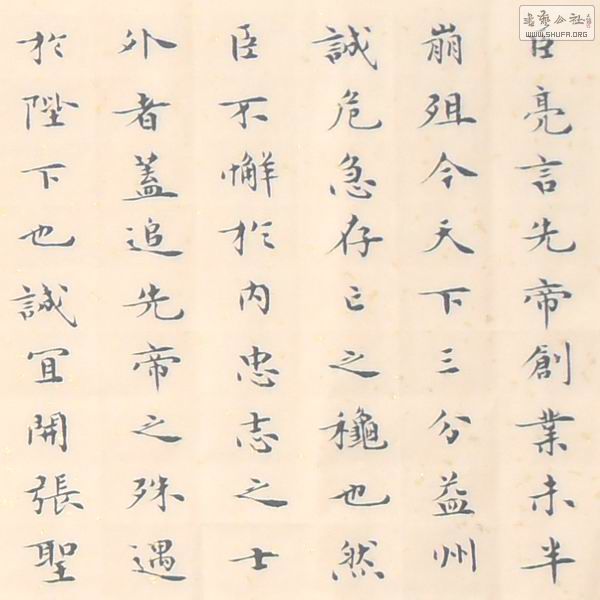 臣亮言先帝創業未半
崩殂今天下三分益州
誠危急存亡之穐也然
臣不懈於内忠志之士
外者蓋追先帝之殊遇
於陛下也誠宜開張聖
書藝公社
WWW.SHUFA.ORG